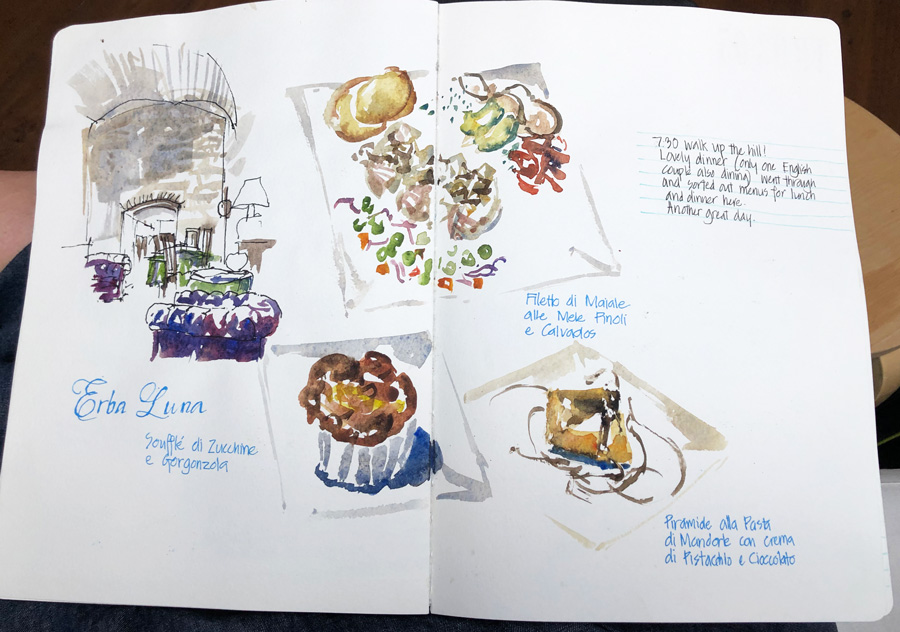 Erba Luna
Soufflé di Zucchine
e Gorgonzola
7.30 walk up the hill!
Lovely dinner (only one English
couple also dining) went through
and sorted out menus for lunch
and dinner here.
Another great day.
Filetto di Maiale
alle Mele Pinoli
e Calvados
Piramide alla Pasta
di Mandorle con crema
di Pistacchio e Cioccolato